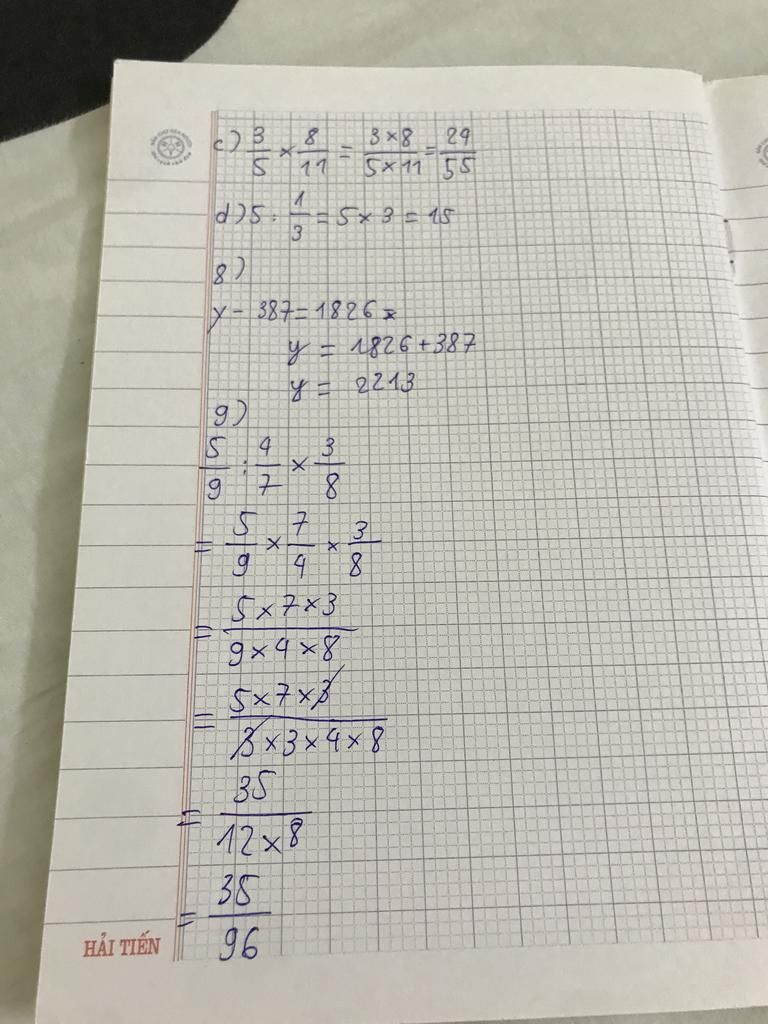 c) 3/5 × 8/11 = 3×8/5×11 = 24/55
d) 5 : 1/3 = 5 × 3 = 15
8)
y - 387 = 1826
y = 1826 + 387
y = 2213
9)
5/9 : 4/7 × 3/8
= 5/9 × 7/4 × 3/8
= 5 × 7 × 3/9 × 4 × 8
= 5 × 7 × 3/3 × 3 × 4 × 8
= 35/12 × 8
= 35/96
HẢI TIẾN